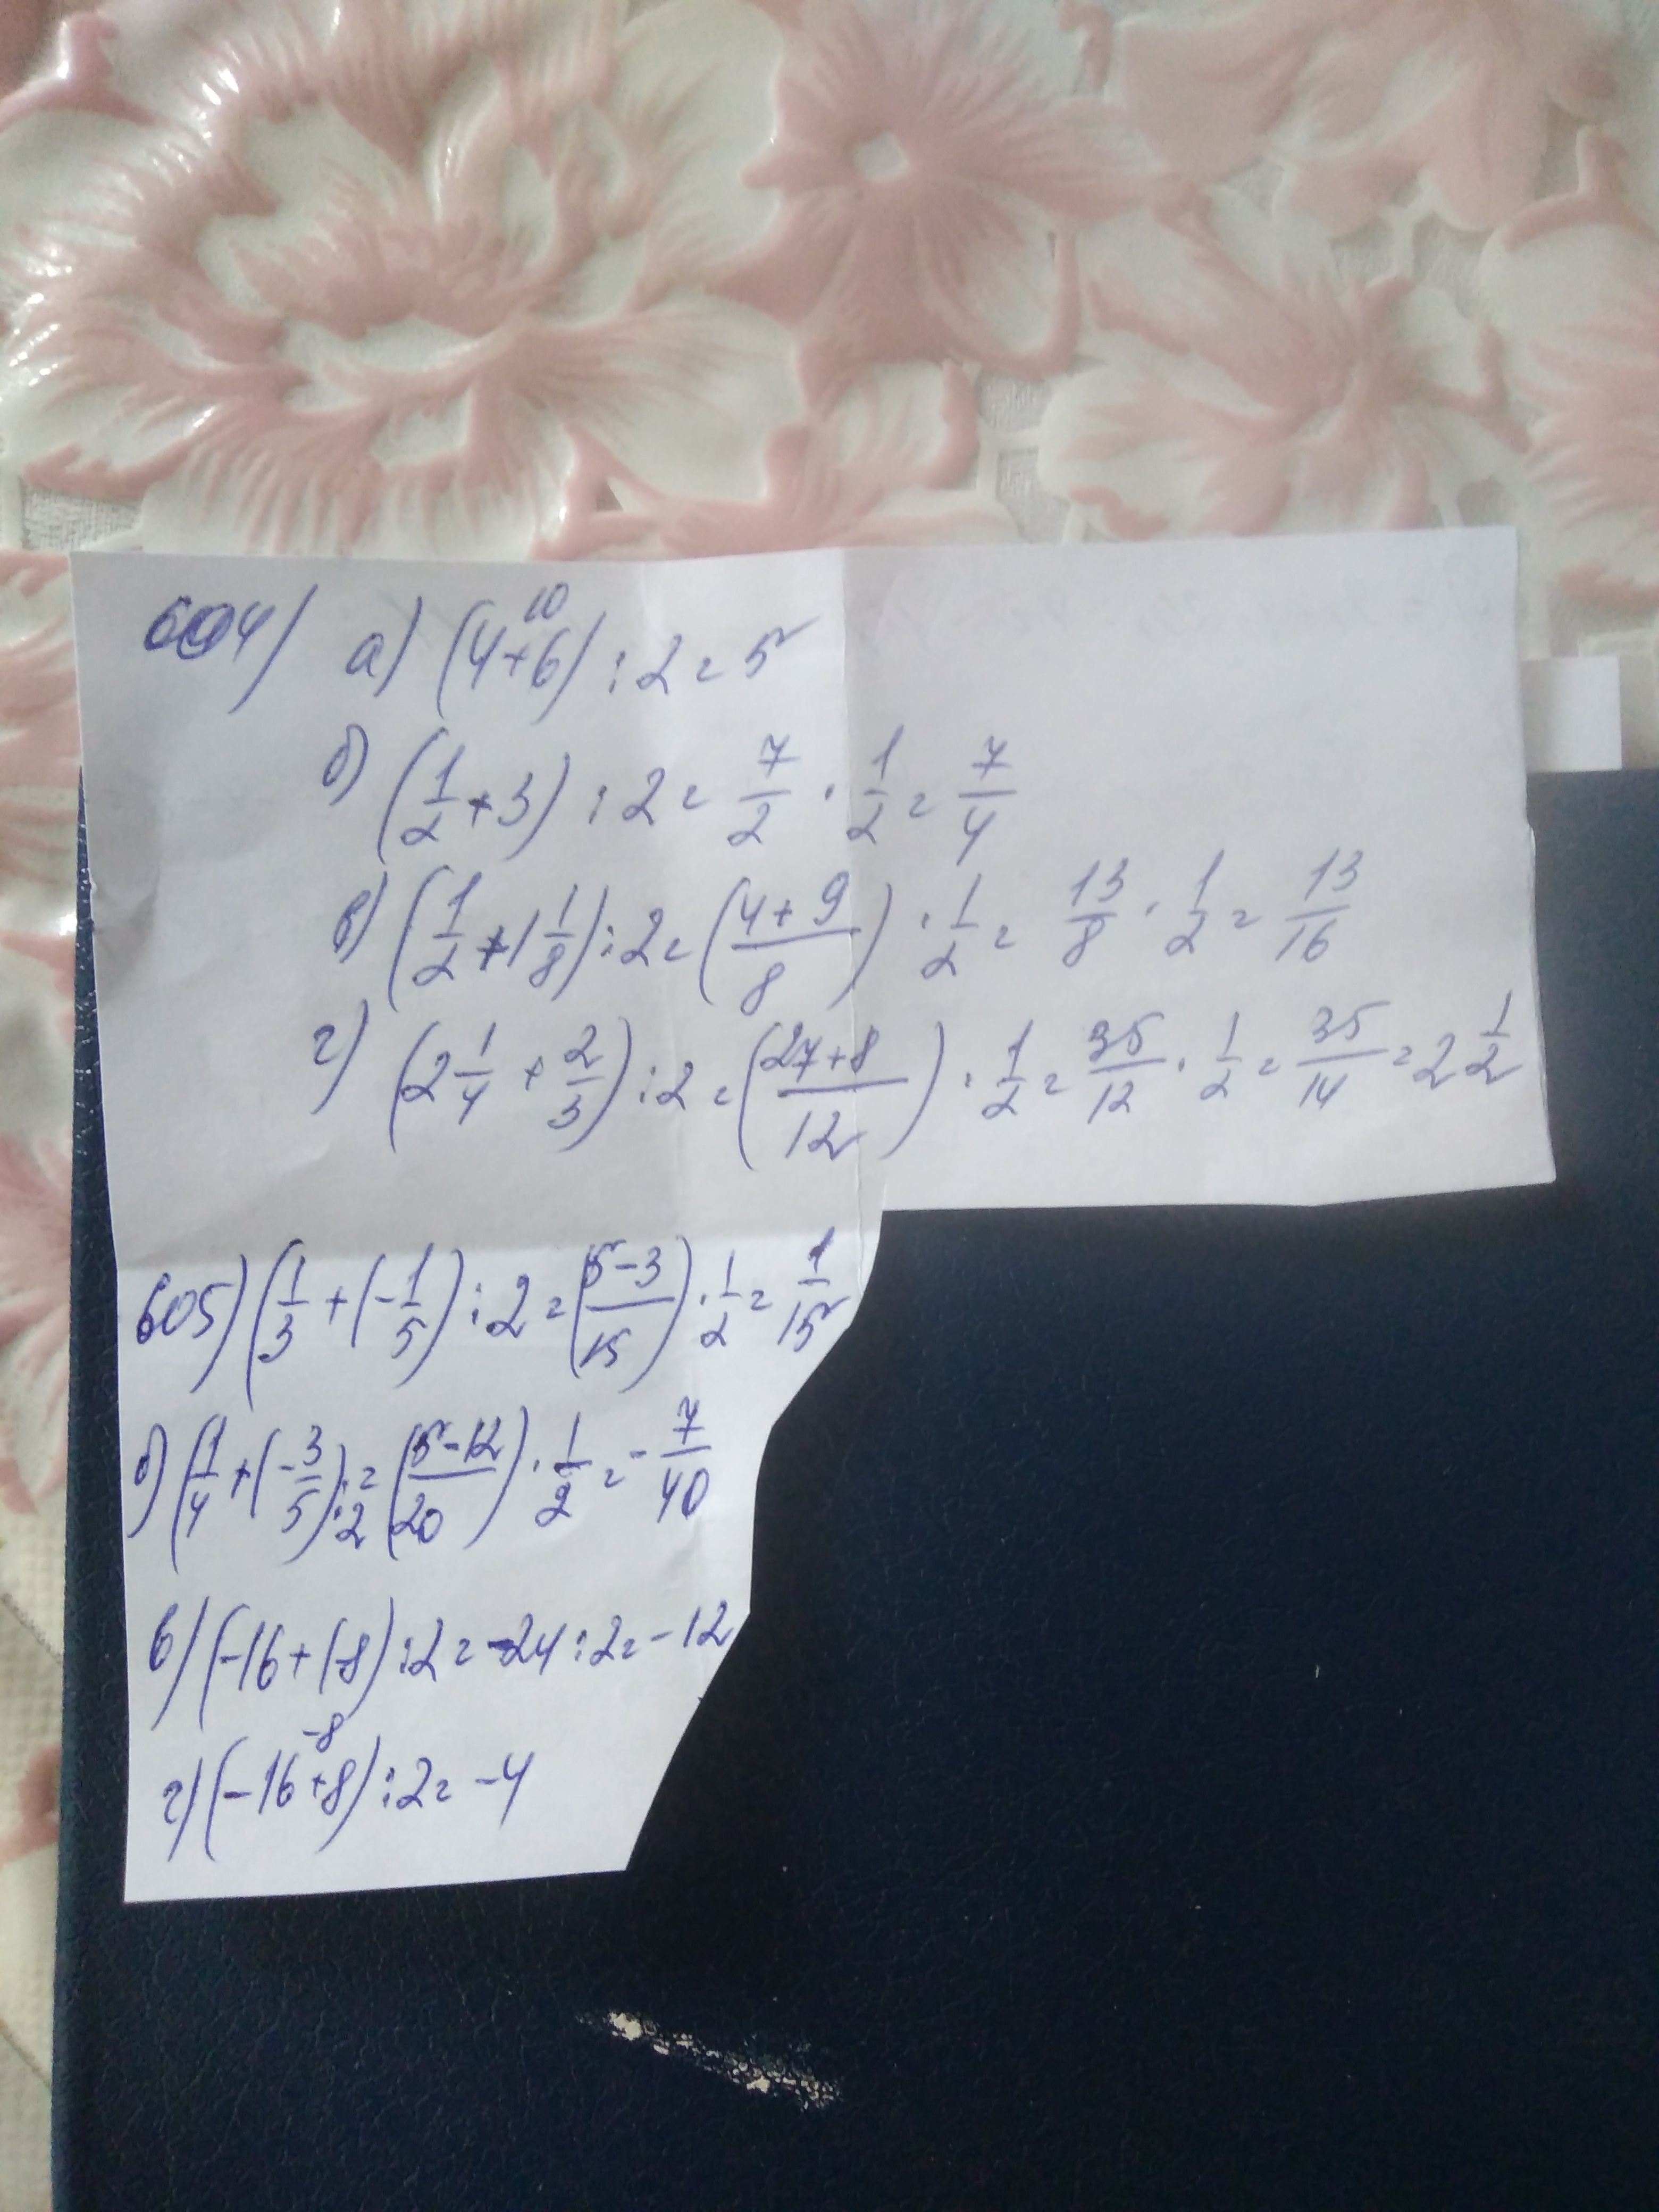 604) а) (4+6) 10 : 2 = 5
б) (1/2 + 3) : 2 = 7/2 · 1/2 = 7/4
в) (1/2 + 1 1/8) : 2 = (4+9/8) · 1/2 = 13/8 · 1/2 = 13/16
г) (2 1/4 + 2/3) : 2 = (27+8/12) · 1/2 = 35/12 · 1/2 = 35/14 = 2 1/2
605) (1/3 + (-1/5) : 2 = (5-3/15) · 1/2 = 1/15
б) (1/4 + (-3/5) : 2 = (5-12/20) · 1/2 = - 7/40
в) (-16 + (-8) : 2 = -24 : 2 = -12
г) (-16 + 8) -8 : 2 = -4